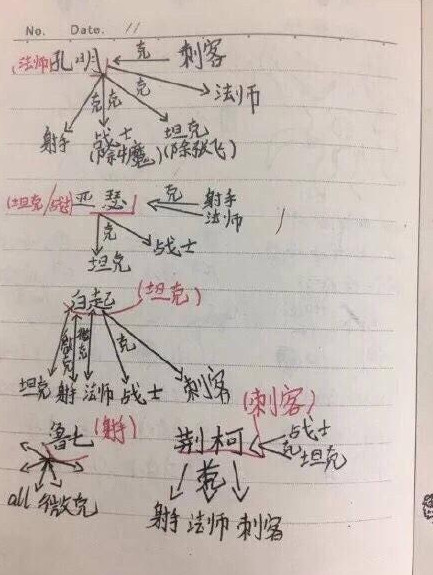 No. Date. 11
(法师)孔明 克 刺客
克 克 克 法师
射手 战士 坦克
(除牛魔) (除张飞)
(坦克/战士) 亚瑟 克 射手
法师
克 战士
坦克
白起 (坦克)
克
坦克 射手 法师 战士 刺客
鲁七 (射手) (刺客)
荆柯 克 战士
坦克
克
all 微克
射手 法师 刺客